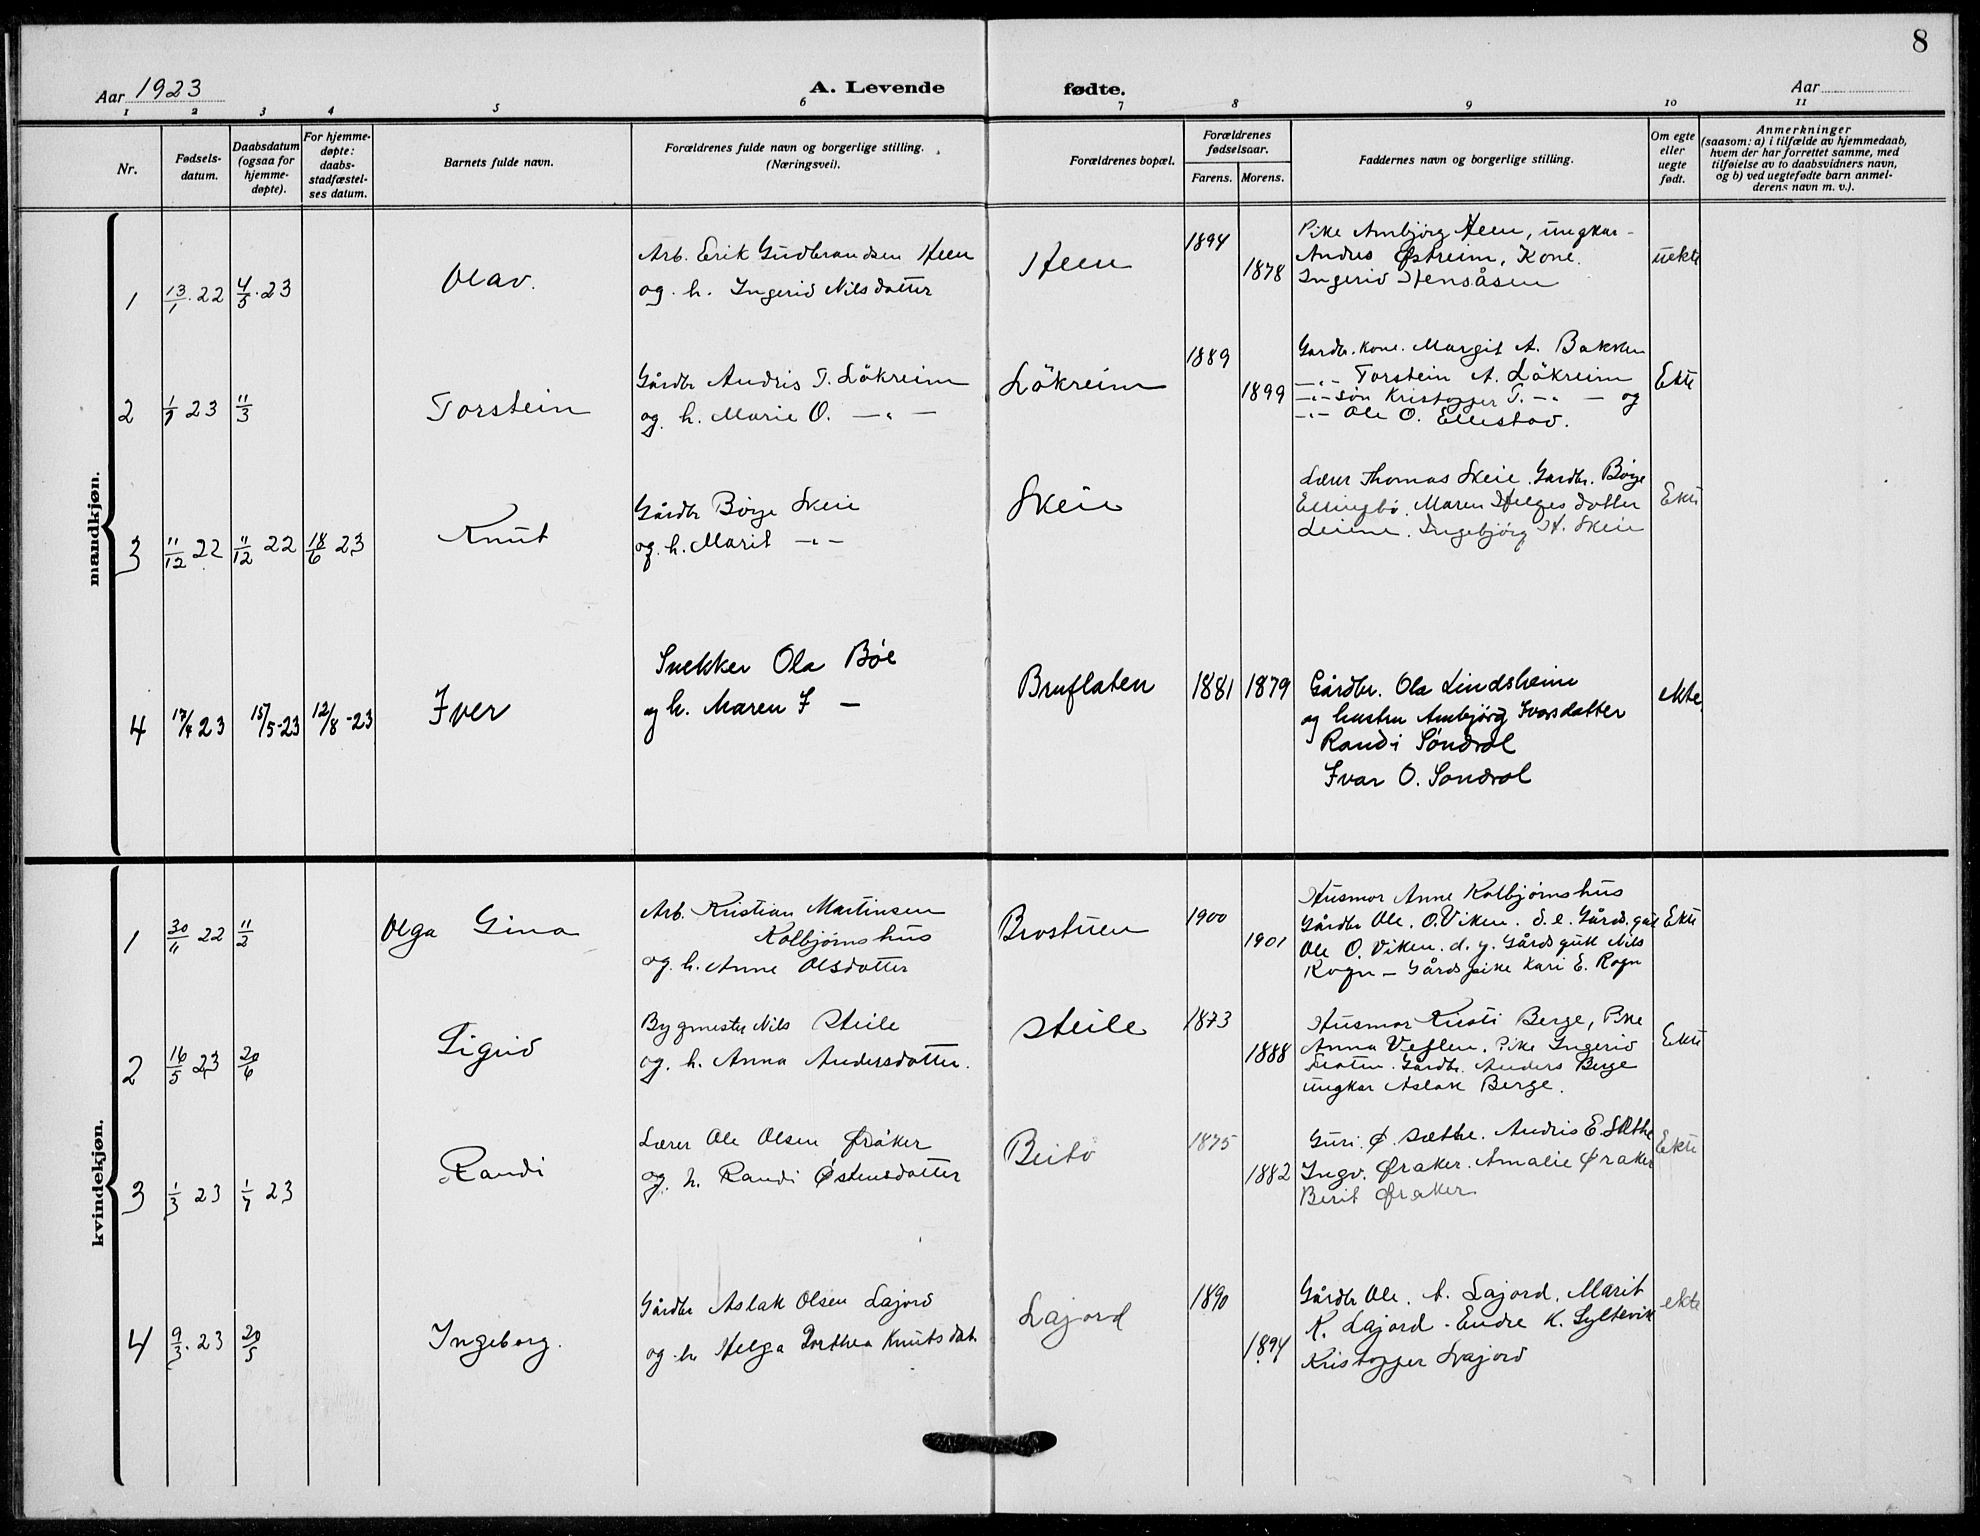 8
Aar 1923
A. Levende fødte.
Aar
1 2 3 4 5 6 7 8 9 10 11
Nr.
Fødsels-
datum.
Daabsdatum
(ogsaa for
hjemme-
døpte).
For hjemme-
døpte:
daabs-
stadfæstel-
ses datum.
Barnets fulde navn.
Forældrenes fulde navn og borgerlige stilling.
(Næringsvei).
Forældrenes bopæl.
Forældrenes
fødselsaar.
Farens. Morens.
Faddernes navn og borgerlige stilling.
Om egte
eller
uegte
født.
Anmerkninger
(saasom: a) i tilfælde av hjemmedaab,
hvem der har forrettet samme, med
tilføielse av to daabsvidners navn,
og b) ved uegtefødte barn anmel-
derens navn m. v.).
mandkjøn.
1 13/1. 22 4/5. 23
Olav.
Arb. Erik Gudbrandsen Heen
og. h. Ingerid Nilsdatter
Heen
1894 1878
Pike Ambjørg Heen, ungkar-
Andris Østreim, Kone.
Ingerid Hensåsen
uekte
2 1/1 23 11/3
Torstein
Gårdbr Andris T. Løkreim
og. h. Marie O. —"—
Løkreim
1889 1899
Gardbr. Kone. Margit A. Bakken
—"— Torstein A. Løkreim
—"— søn Kristopper T. —"— og
—"— Ole O. Ellestad.
Ekte
3 11/12 22 11/12 22 18/6 23
Knut
Gårdbr Børge Skeie
og. h. Marit —"—
Skeie
Lærer Thomas Skeie. Gardbr. Børge
Ellingbø. Maren Helgesdatter
Leine. Ingebjørg H. Skeie
Ekte
4 17/4 23 15/5-23 12/8-23
Iver
Snekker Ola Bøe
og h. Maren I —
Bruflaten
1881 1879
Gårdbr. Ola Lindsheim
og hustru Ambjørg Ivarsdatter
Randi Søndrol
Ivar O. Søndrol
ekte
kvindekjøn.
1 30/11 22 11/2
Olga Gina
Arb. Kristian Martinsen
Kolbjørnshus
og. h. Anne Olsdatter
Brostuen
1900 1901
Husmor Anne Kolbjørnshus
Gårdbr Ole. O. Viken. d. e. Gårds. gut
Ole O. Viken. d. y. Gårdsgutt Nils
Rogn — Gårdspike Kari E. Rogn
Ekte
2 16/5 23 20/6
Sigrid
Bygmester Nils Steile
og. h. Anna Andersdatter.
Steile
1873 1888
Husmor Kristi Berge, Pike
Anna Veflen. Pike Ingerid
Gårdbr. Anders Berge
ungkar Aslak Berge.
Ekte
3 1/3 23 1/7 23
Randi
Lærer Ole Olsen Øråker
og. h. Randi Østensdatter
Beito
1875 1882
Guri. Ø Sæthe. Andris E Sæthe
Ingv. Øraker. Amalie Øraker
Berit Øraker
Ekte
4 9/3. 23 20/5
Ingeborg.
Gårdbr Aslak Olsen Lajord
og. h Helga Dorthea Knutsdat
Lajord
1890 1894
Gårdbr Ole. A. Lajord. Marit
K. Lajord. Endre K. Syltevik
Kristopper Lajord
ekte